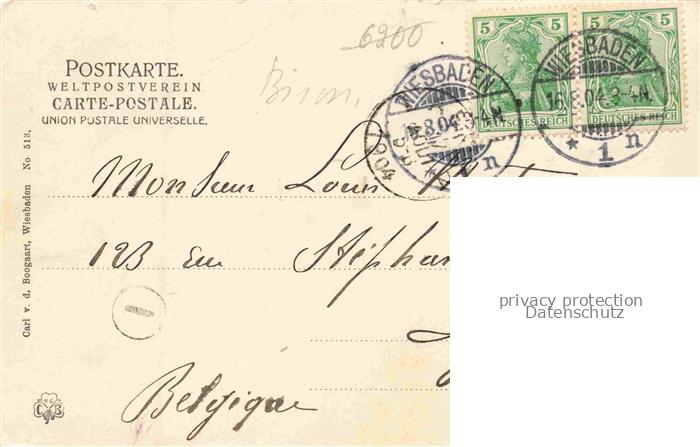 6200
5 5
POSTKARTE.
WELTPOSTVEREIN
CARTE-POSTALE.
UNION POSTALE UNIVERSELLE.
WIESBADEN
8.04.3-4N.
* 1 n
WIESBADEN
16.8.04.3-4N.
* 1 n
DEUTSCHES REICH
DEUTSCHES REICH
1904
Monsieur Louis
123 Rue Stéphan
Belgique
1
Carl v. d. Boogaart, Wiesbaden No. 513.
C B
privacy protection
Datenschutz